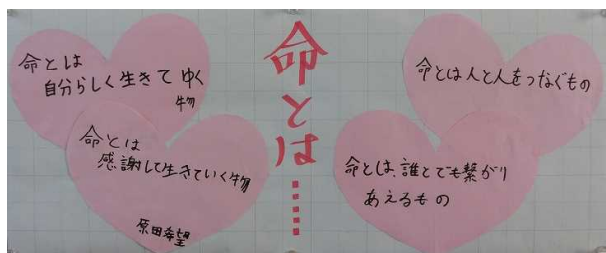 命とは
自分らしく生きてゆく
物
命とは
感謝して生きていく物
原田希望
命とは……
命とは人と人をつなぐもの
命とは、誰とでも繋がり
あえるもの